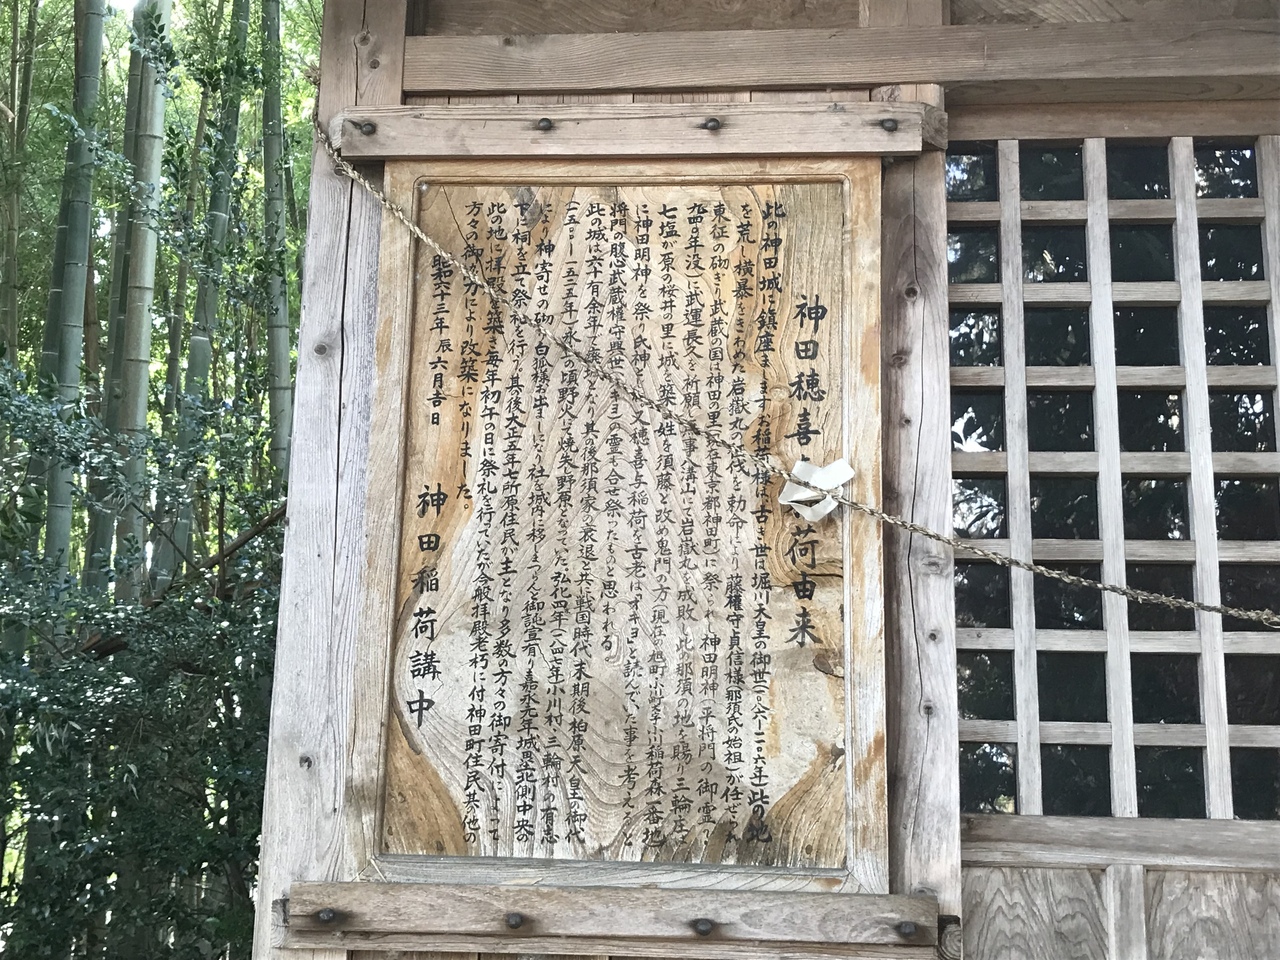 神田穂喜 荷由来
此の神田城に鎮座まします お稲荷様は、古き世は堀川天皇の御世(一〇八六-一一〇六年)此の地
を荒し横暴をきわめた岩嶽丸の 代を勅命により藤権守貞信様(那須氏の始祖)が任ぜられ
東征の砌ぎり武蔵の国は神田の里(現在東京都神田町)に祭られし神田明神(平将門の御霊
九四〇年没)に武運長久を祈願し 事八溝山にて岩嶽丸を成敗し此の那須の地を賜り三輪庄
七塩が原の桜井の里に城を築き姓を須藤と改め鬼門の方(現在の旭町小川町字小川稲荷森一番地)
に神田明神を祭り氏神と 又穂喜与稲荷を古老はオキヨと読んでいた事を考えると
将門の腹心武蔵権守興世(オキヨ)の霊も合せ祭ったものと思われる
此の城は六十有余年で廃城となり其の後那須家の衰退と共に戦国時代末期後柏原天皇の御代
(一五〇一-一五二五年)永正の頃野火で焼失し野原となっていた。弘化四年(一八四七年)小川村三輪村の有志
により神寄せの砌り白狐様お出ましになり社を城内に移しまつらんと御託宣有り嘉永元年城塁北側中央の
下に祠を立て祭礼を行う。其の後大正五年七所原住民が主となり多数の方々の御寄付によって
此の地に拝殿を築き毎年初午の日に祭礼を行ってたが今般拝殿老朽に付神田町住民其の他の
方々の御 力により改築になりました。
昭和六十三年辰 六月吉日
神田稲荷講中